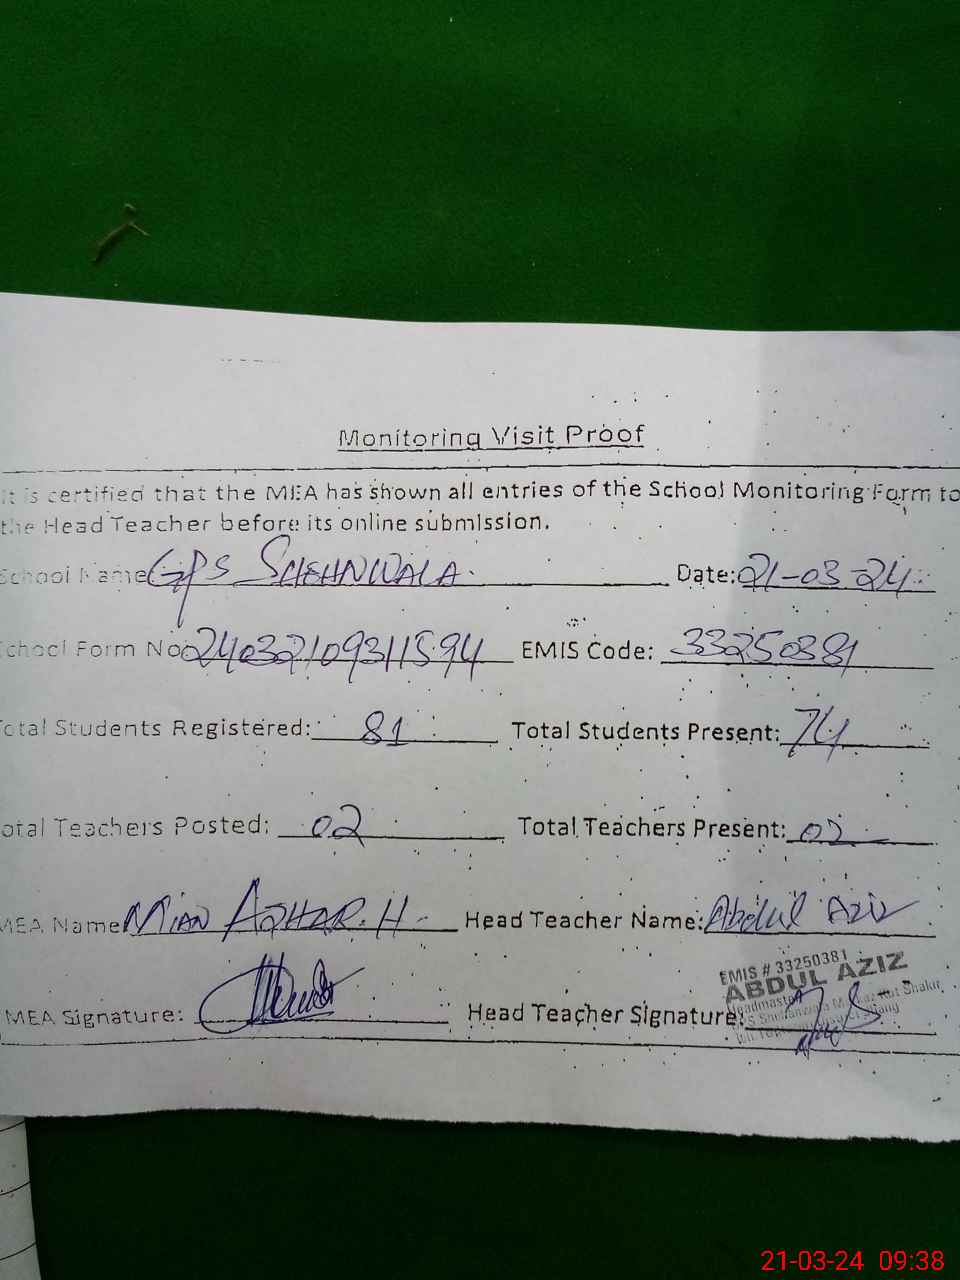 Monitoring Visit Proof
It is certified that the MEA has shown all entries of the School Monitoring Form to
the Head Teacher before its online submission.
School Name GPS SHEHNWALA. Date: 21-03-24
School Form No: 24032109311594 EMIS Code: 33250381
Total Students Registered: 81 Total Students Present: 74
Total Teachers Posted: 02 Total Teachers Present: 02
MEA Name MIAN AZHAR. H Head Teacher Name: Abdul Aziz
EMIS # 33250381
ABDUL AZIZ
Headmaster
MEA Signature: Head Teacher Signature:
21-03-24 09:38